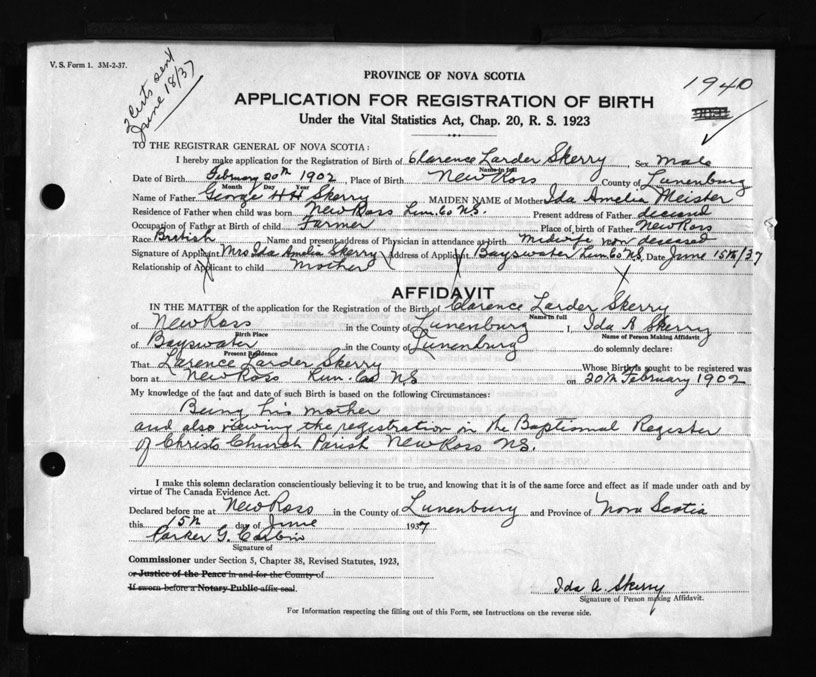 V. S. Form 1. 3M-2-37.
2 Certs sent
June 18/37
1940
PROVINCE OF NOVA SCOTIA
APPLICATION FOR REGISTRATION OF BIRTH
Under the Vital Statistics Act, Chap. 20, R. S. 1923
TO THE REGISTRAR GENERAL OF NOVA SCOTIA:
I hereby make application for the Registration of Birth of Clarence Larder Skerry Sex Male
Name in full
Date of Birth February 20th 1902, Place of Birth New Ross County of Lunenburg
Month Day Year
Name of Father George H H Skerry MAIDEN NAME of Mother Ida Amelia Meister
Residence of Father when child was born New Ross Lun. Co NS. Present address of Father deceased
Occupation of Father at Birth of child Farmer Place of birth of Father New Ross
Race British Name and present address of Physician in attendance at birth midwife now deceased
Signature of Applicant Mrs Ida Amelia Skerry Address of Applicant Bayswater Lun. Co NS, Date June 15th/37
Relationship of Applicant to child mother
AFFIDAVIT
IN THE MATTER of the application for the Registration of the Birth of Clarence Larder Skerry
Name in full
of New Ross in the County of Lunenburg I, Ida A Skerry
Birth Place Name of Person Making Affidavit
of Bayswater in the County of Lunenburg do solemnly declare:
Present Residence
That Larence Larder Skerry Whose Birth is sought to be registered was
born at New Ross Lun. Co NS on 20th February 1902
My knowledge of the fact and date of such Birth is based on the following Circumstances:
Being his mother
and also viewing the registration in the Baptismal Register
of Christs Church Parish New Ross NS.
I make this solemn declaration conscientiously believing it to be true, and knowing that it is of the same force and effect as if made under oath and by
virtue of The Canada Evidence Act.
Declared before me at New Ross in the County of Lunenburg and Province of Nova Scotia
this 15th day of June 1937
Parker G.
Signature of
Commissioner under Section 5, Chapter 38, Revised Statutes, 1923,
or Justice of the Peace in and for the County of
If sworn before a Notary Public affix seal.
Ida A. Skerry
Signature of Person making Affidavit.
For Information respecting the filling out of this Form, see Instructions on the reverse side.